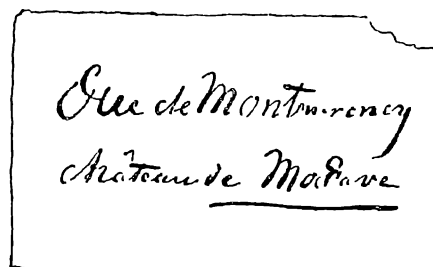 Duc de Montmorency
château de Modave